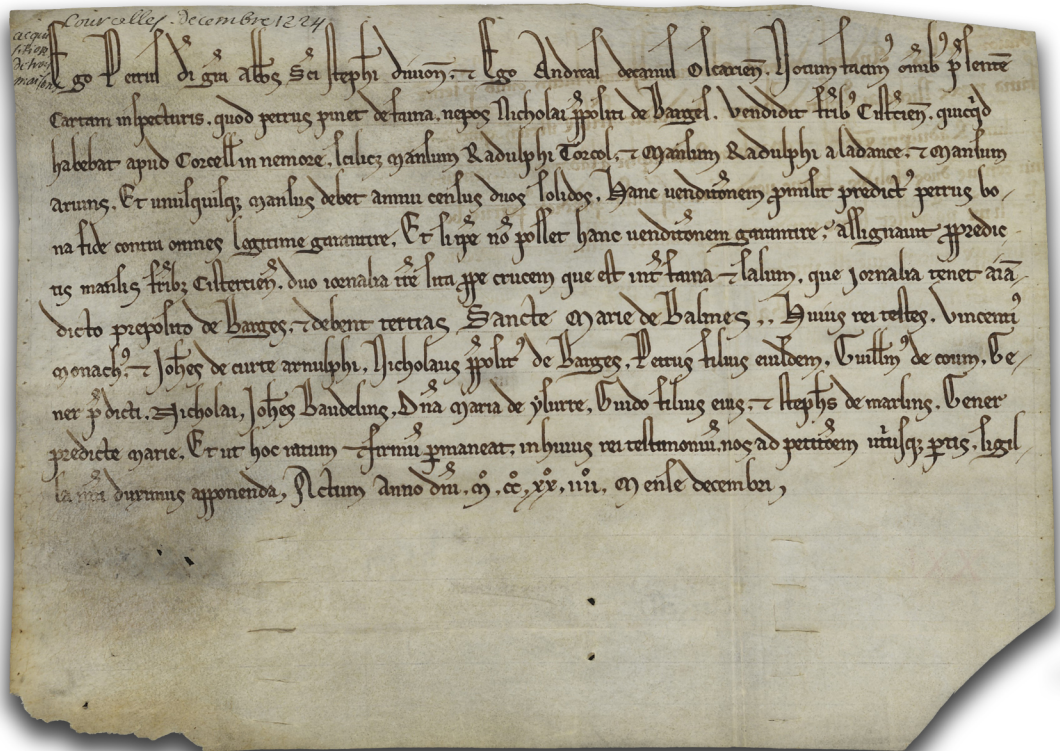 Courcelles. decembre 1224
acqui
sition
de hors
maisons
Ego Petrus di gra abbs Sci Stephi divion. ⁊ Ego Andreas decanus Oscarien. Notum facim' omib' psentē
Cartam inspecturis. quod petrus pinet de faina. nepos Nicholai ppositi de Barges. Vendidit frib' Cistcien. quicqd
habebat apud Corcell in nemore. scilicz mansum Radulphi Torcol. ⁊ Mansum Radulphi a ladance. ⁊ Mansum
arums. Et unusquisqz mansus debet annui census duos solidos. Hanc venditionem pmisit predict' petrus bo-
na fide contra omnes legitime garantire. Et si ipe no posset hanc venditonem garantire; assignavit ppredic-
tis mansis frib; Cistercien. duo iornalia tre sita ppe crucem que est int faina ⁊ salum. que Jornalia tenet aia-
dicto preposito de Barges. ⁊ debent tertias Sancte Marie de Balmes .. Huius rei testes. Vincenti'
monach'. ⁊ Johes de curte arnulphi. Nicholaus pposit' de Barges. Petrus filius eiusdem. Guillm' de coum. Ge-
ner pdicti. Nicholai. Johes Baudelins. Dna Maria de ysurre. Guido filius eius. ⁊ stephs de marlins. Gener
predicte marie. Et ut hoc ratum ⁊ firmu pmaneat; in huius rei testimoniu. nos ad petitoem utiusqz ptis. sigil-
la nra duximus apponenda. Actum Anno dni. M. cc. xx. iiii. Mense decembri.